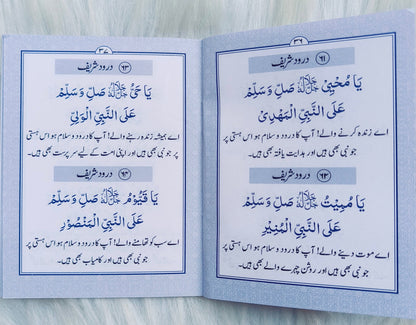 ۳۶
۶۱ درود شریف
یَا مُحْیِیْ جل جلالہ صَلِّ وَسَلِّمْ
عَلَی النَّبِیِّ الْمَھْدِیِّ
اے زندہ کرنے والے! آپ کا درود و سلام ہو اس ہستی پر
جو نبی بھی ہیں اور ہدایت یافتہ بھی ہیں۔
۶۲ درود شریف
یَا مُمِیْتُ جل جلالہ صَلِّ وَسَلِّمْ
عَلَی النَّبِیِّ الْمُنِیْرِ
اے موت دینے والے! آپ کا درود و سلام ہو اس ہستی پر
جو نبی بھی ہیں اور روشن چہرے والے بھی ہیں۔
۳۷
۶۳ درود شریف
یَا حَیُّ جل جلالہ صَلِّ وَسَلِّمْ
عَلَی النَّبِیِّ الْوَلِیِّ
اے ہمیشہ زندہ رہنے والے! آپ کا درود و سلام ہو اس ہستی
پر جو نبی بھی ہیں اور اپنی امت کے لیے سر پرست بھی ہیں۔
۶۴ درود شریف
یَا قَیُّوْمُ جل جلالہ صَلِّ وَسَلِّمْ
عَلَی النَّبِیِّ الْمَنْصُوْرِ
اے سب کو تھامنے والے! آپ کا درود و سلام ہو اس ہستی پر
جو نبی بھی ہیں اور کامیاب بھی ہیں۔